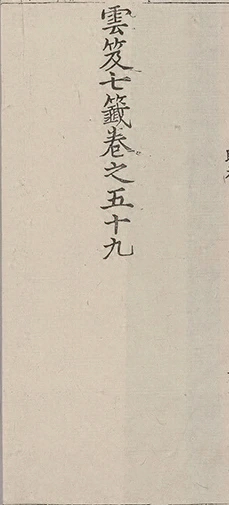 雲笈七籤卷之五十九